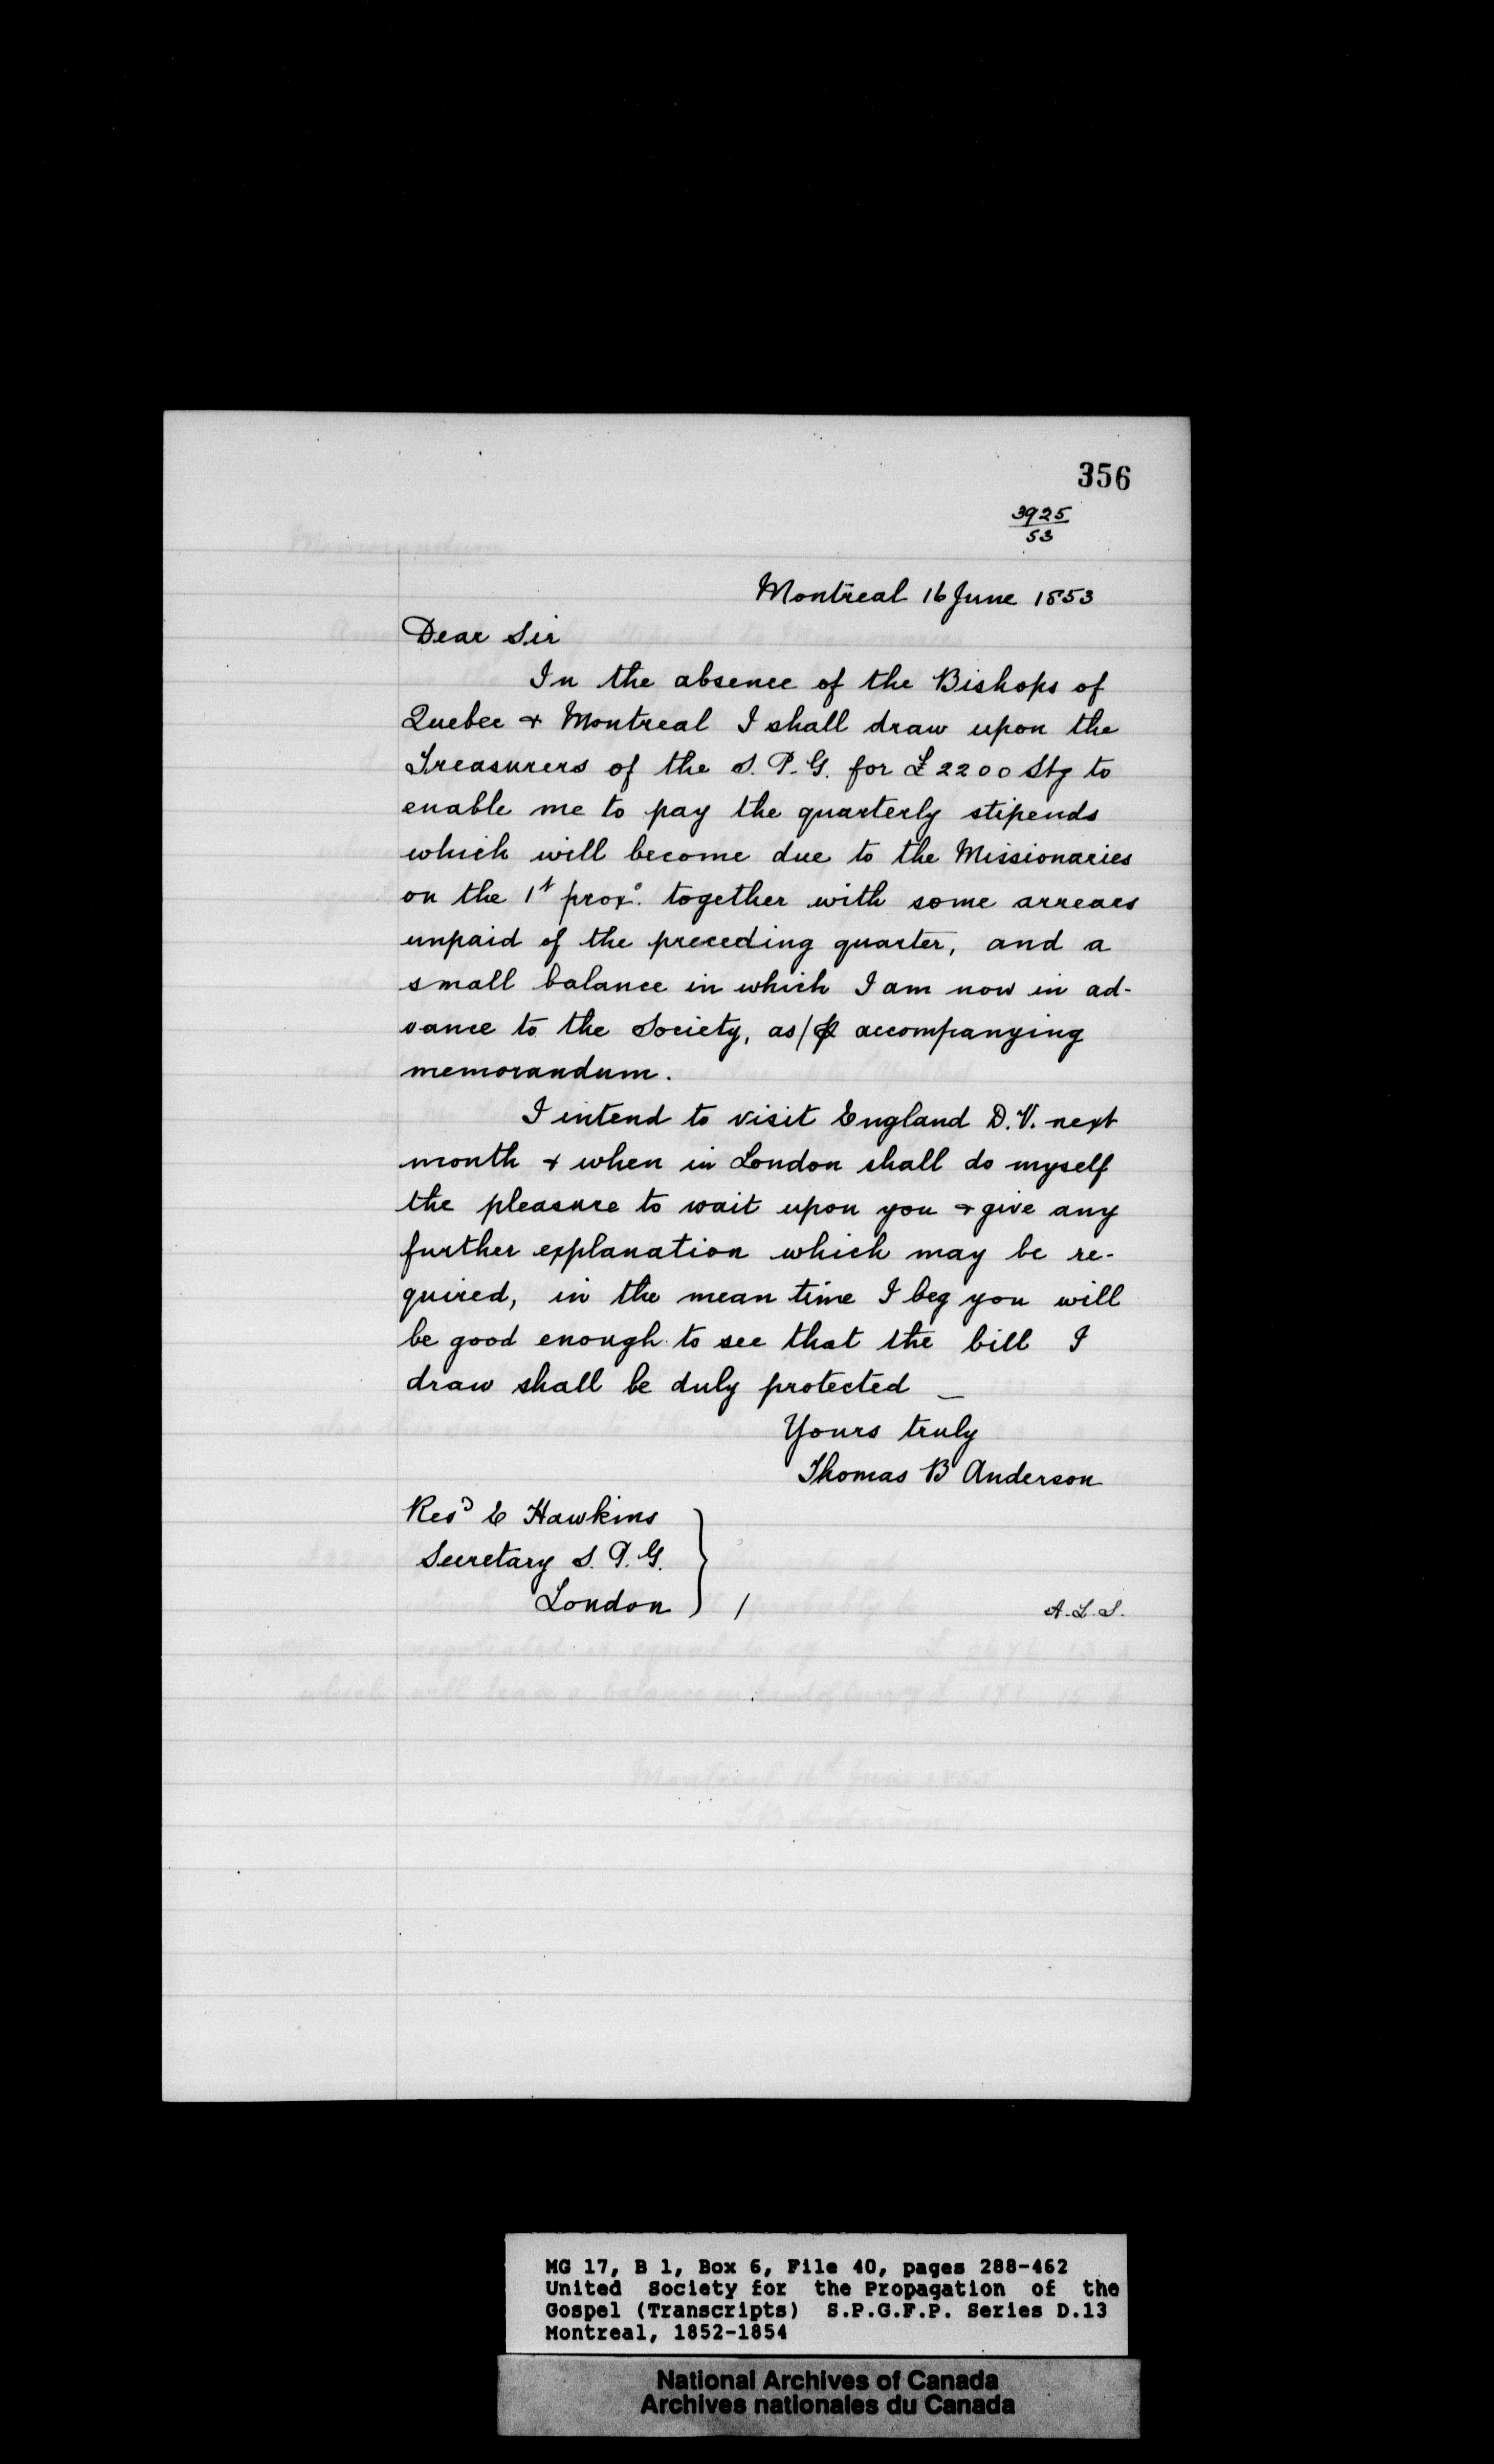 356
3925
53
Montreal 16 June 1853
Dear Sir
In the absence of the Bishops of
Quebec & Montreal I shall draw upon the
Treasurers of the S. P. G. for £2200 Stg to
enable me to pay the quarterly stipends
which will become due to the Missionaries
on the 1st proxo. together with some arrears
unpaid of the preceding quarter, and a
small balance in which I am now in ad-
vance to the Society, as/ accompanying
memorandum.
I intend to visit England D.V. next
month & when in London shall do myself
the pleasure to wait upon you & give any
further explanation which may be re-
quired, in the mean time I beg you will
be good enough to see that the bill I
draw shall be duly protected _
Yours truly
Thomas B Anderson
Revd E Hawkins
Secretary S. P. G.
London /
A.L.S.
MG 17, B 1, Box 6, File 40, pages 288-462
United Society for the Propagation of the
Gospel (Transcripts) S.P.G.F.P. Series D.13
Montreal, 1852-1854
National Archives of Canada
Archives nationales du Canada